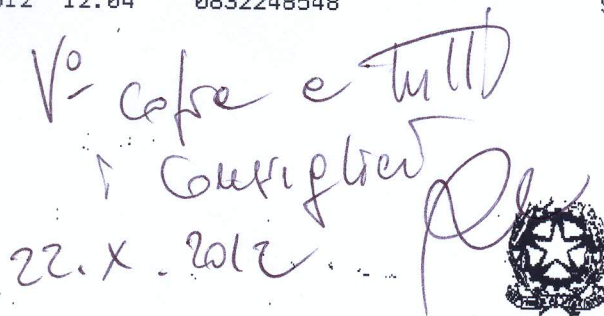 012 12:04 0832248548
V° copia a tutti
i Consiglieri
22.X.2012